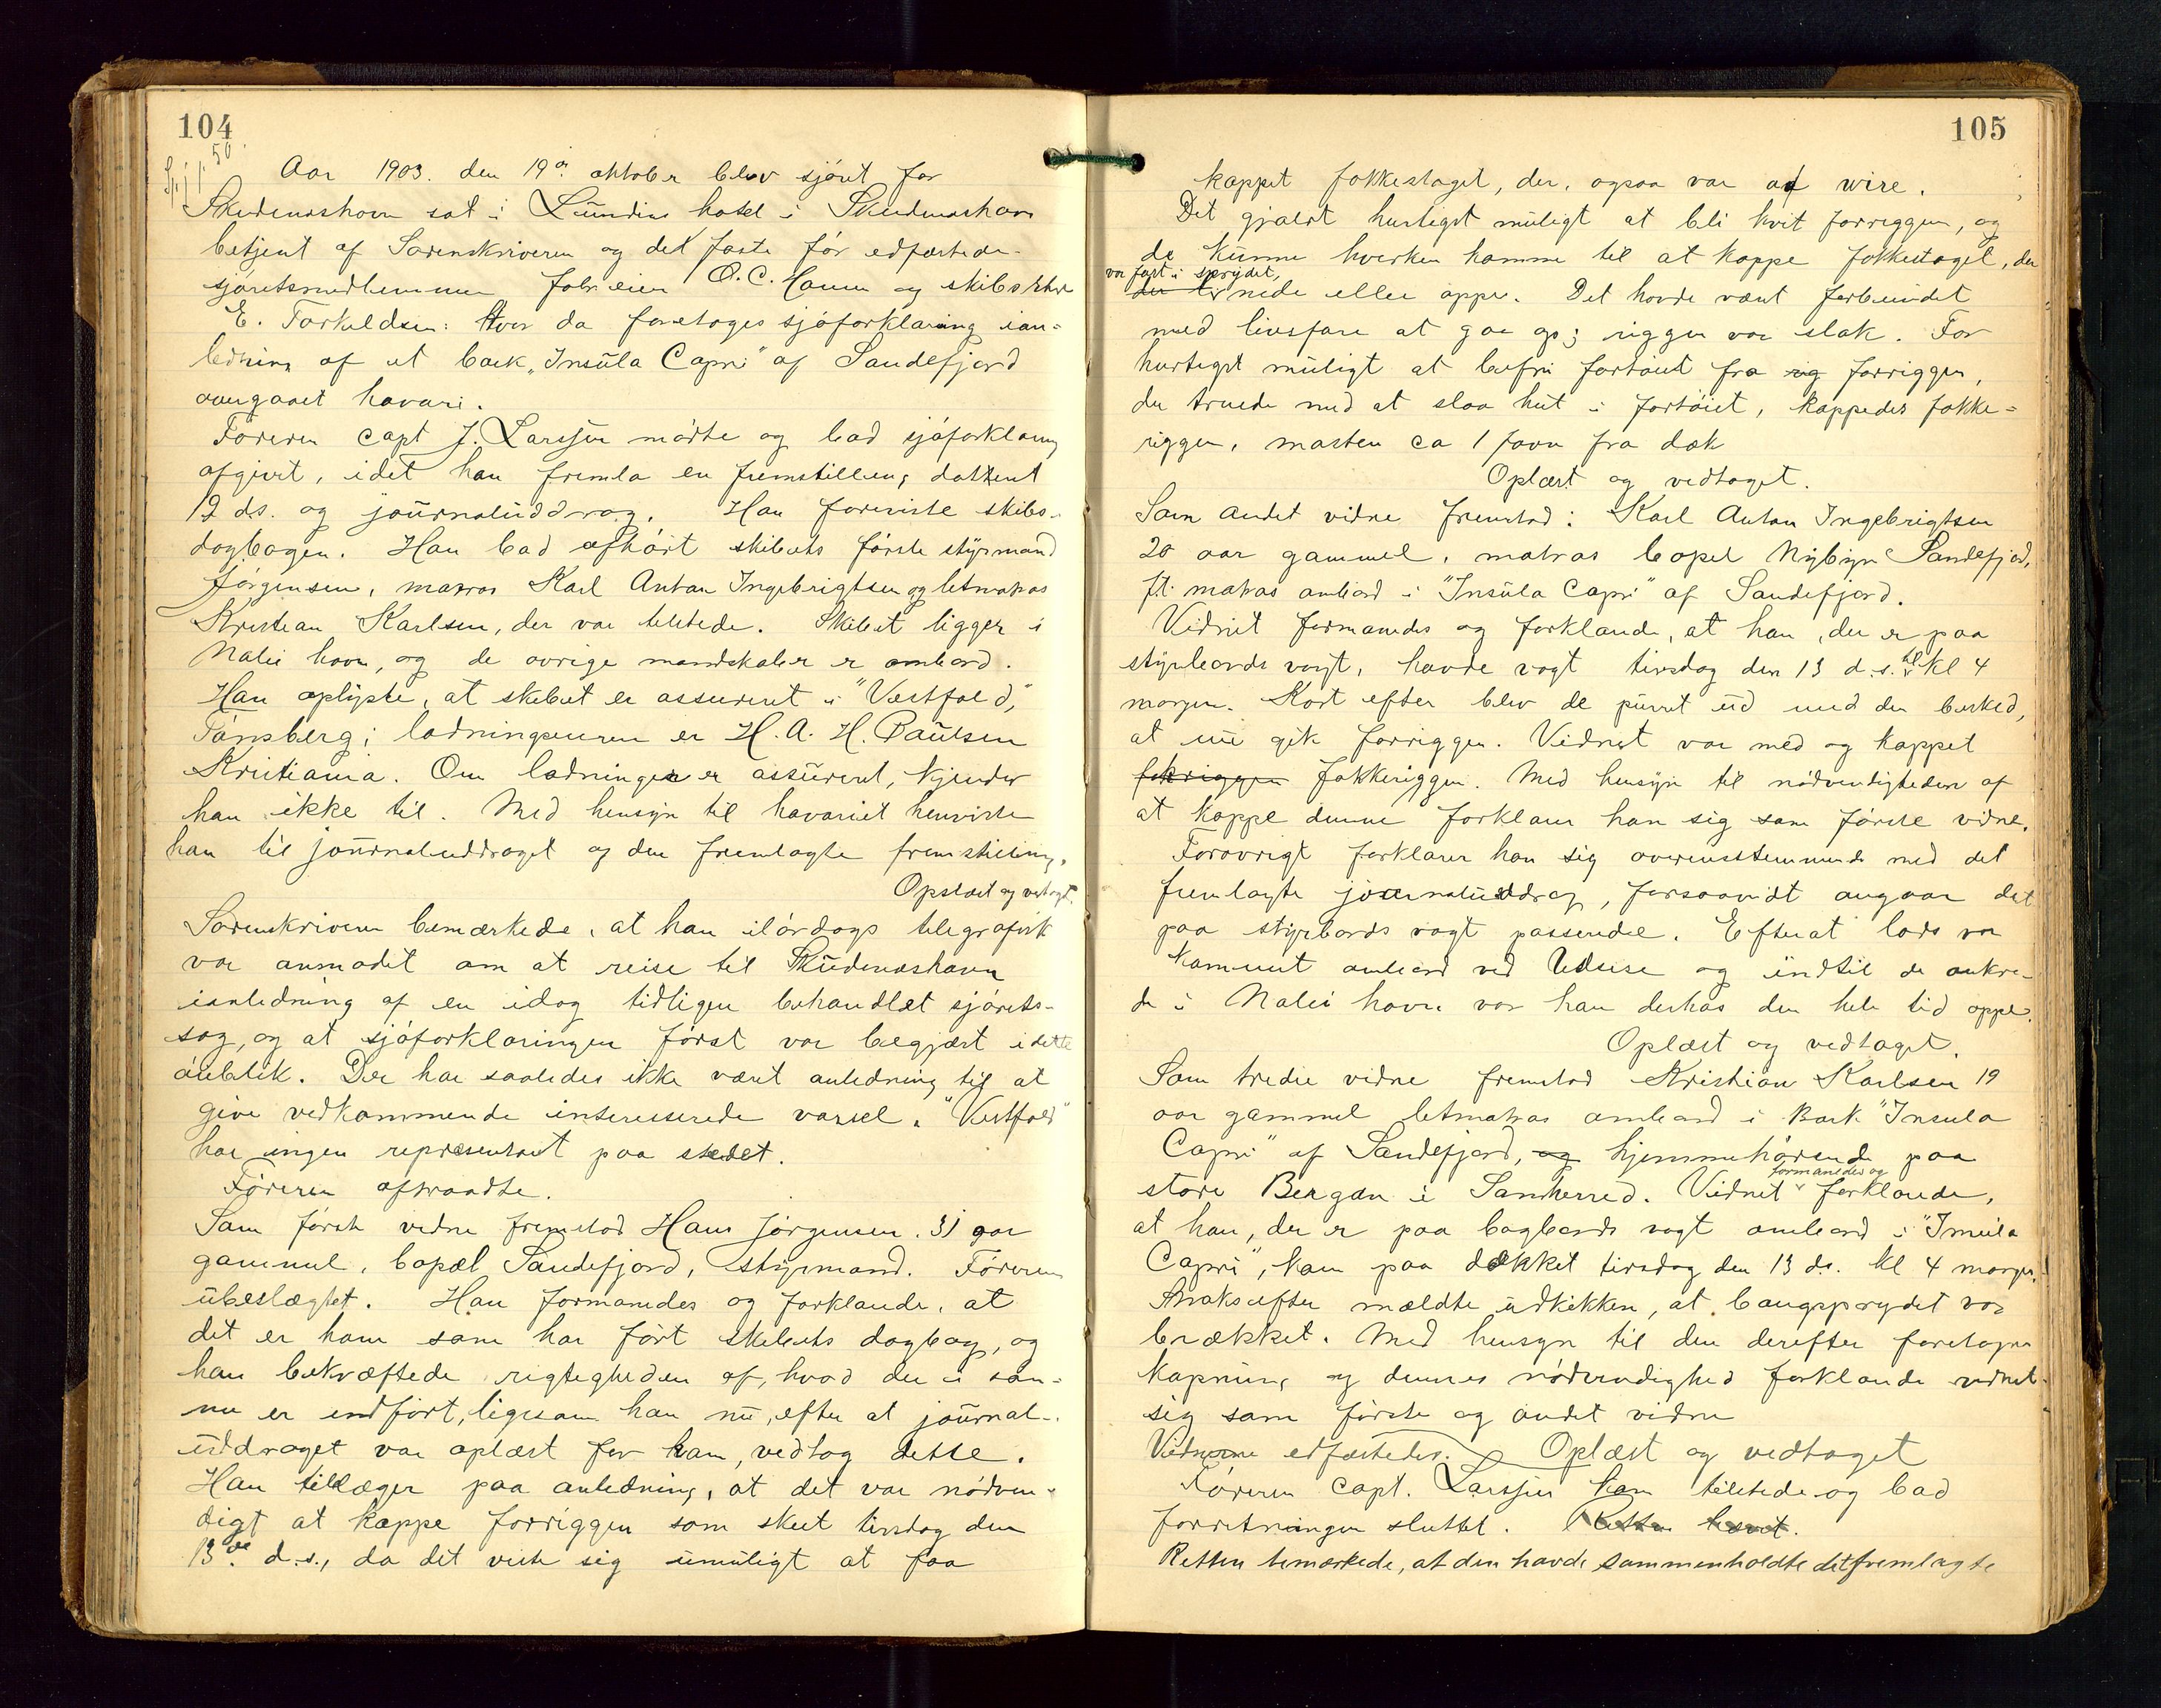 104
50
Aar 1903. den 19de oktober blev sjöret for
Skudeneshavn sat i Lundins hotel i Skudeneshavn
betjent af Sorenskriveren og det faste för edfæstede
sjöretsmedlemmer O. C. Hamn og skibsreder
E. Torkeldsen: Hvor da foretoges sjöforklaring ian-
ledning af at bark "Insula Capri" af Sandefjord
overgaaet havari.
Föreren capt J. Larssen mödte og bad sjöforklaring
afgivet, idet han fremla en fremstilling dateret
12 d.s. og journaluddrag. Han foreviste skibs-
dagbogen. Han bad afhört skibets förste styrmand
Jörgensen, matros Karl Anton Ingebrigtsen og letmatros
Kristian Karlsen, der var tilstede. Skibet ligger i
Nalei havn, og de övrige mandskaber er ombord.
Han oplyste, at skibet er assureret i "Vestfold,"
Tönsberg; ladningseieren er H. A. H. Paulsen
Kristiania. Om ladningen er assureret, kjender
han ikke til. Med hensyn til havariet henviste
han til journaluddraget og den fremlagte fremstilling.
Oplæst og vedtaget.
Sorenskriveren bemærkede, at han ilördags telegrafisk
var anmodet om at reise til Skudeneshavn
ianledning af en idag tidligere behandlet sjörets-
sag, og at sjöforklaringen först var begjært i dette
öieblik. Der har saaledes ikke været anledning til at
give vedkommende interesserede varsel. "Vestfold"
har ingen repræsentant paa stedet.
Föreren aftraadte.
Som förste vidne fremstod Hans Jörgensen. 31 aar
gammel, bopæl Sandefjord, styrmand. Föreren
ubeslægtet. Han formanedes og forklarede, at
det er ham som har fört skibets dagbog, og
han bekræftede rigtigheden af, hvad der i den-
ne er indfört, ligesom han nu, efter at journal-
uddraget var oplæst for ham, vedtog dette.
Han tillæger paa anledning, at det var nödven-
digt at kappe forriggen som skeet tirsdag den
13de d.s., da det viste sig umuligt at faa
105
kappet fokkestaget, der, ogsaa var af wire.
Det gjaldt hurtigst muligt at bli kvit forriggen, og
de kunne hverken komme til at kappe fokkestaget, der
var fast i sprydet,
nede eller oppe. Det havde været forbundet
med livsfare at gaa op; riggen var slak. For
hurtigst muligt at befri fartöiet fra rig forriggen,
der truede med at slaa hul i fartöiet, kappedes fokke-
riggen, masten ca 1 favn fra dæk
Oplæst og vedtaget.
Som andet vidne fremstod: Karl Anton Ingebrigtsen
20 aar gammel, matros bopæl Nybyen Sandefjord,
p.t. matros ombord i "Insula Capri" af Sandefjord.
Vidnet formanedes og forklarede, at han, der er paa
styrbords vagt, havde vagt tirsdag den 13 d.s. til kl 4
morgen. Kort efter blev de purret ud med den besked,
at nu gik forriggen. Vidnet var med og kappet
fokriggen fokkeriggen. Med hensyn til nödvendigheden af
at kappe denne forklarer han sig som förste vidne.
Forövrigt forklarer han sig overensstemmende med det
fremlagte journaluddrag, forsaavidt angaar det
paa styrbords vagt passerede. Efterat lods var
kommet ombord ved Udsire og indtil de ankre-
de i Nalei havn var han derhos den hele tid oppe.
Oplæst og vedtaget.
Som tredie vidne fremstod Kristian Karlsen 19
aar gammel letmatros ombord i Bark "Insula
Capri" af Sandefjord, og hjemmehörende paa
formanedes og
store Bergan i Sandherred. Vidnet forklarede,
at han, der er paa bagbords vagt ombord i "Insula
Capri", kom paa dækket tirsdag den 13 ds. kl 4 morgen.
Straks efter mældte udkikken, at baugsprydet var
brækket. Med hensyn til den derefter foretagne
kapning og dennes nödvendighed forklarede vidnet
sig som förste og andet vidne
Vidnerne edfæstedes. Oplæst og vedtaget
Föreren capt. Larssen kom tilstede og bad
forretningen sluttet. Retten hævet.
Retten bemærkede, at den havde sammenholdte det fremlagte